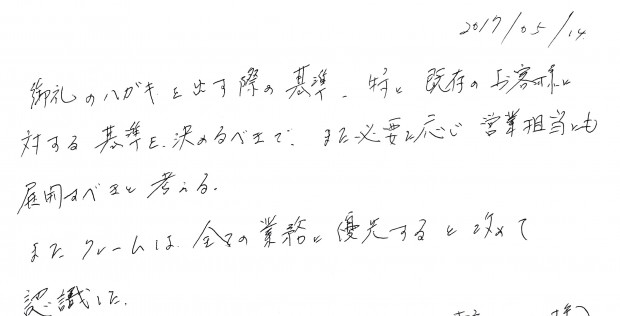 2017/05/14
御礼のハガキを出す際の基準、特に既存のお客様に
対する基準を決めるべきで、また必要に応じ営業担当にも
展開すべきと考える。
またクレームは全ての業務に優先すると改めて
認識した。